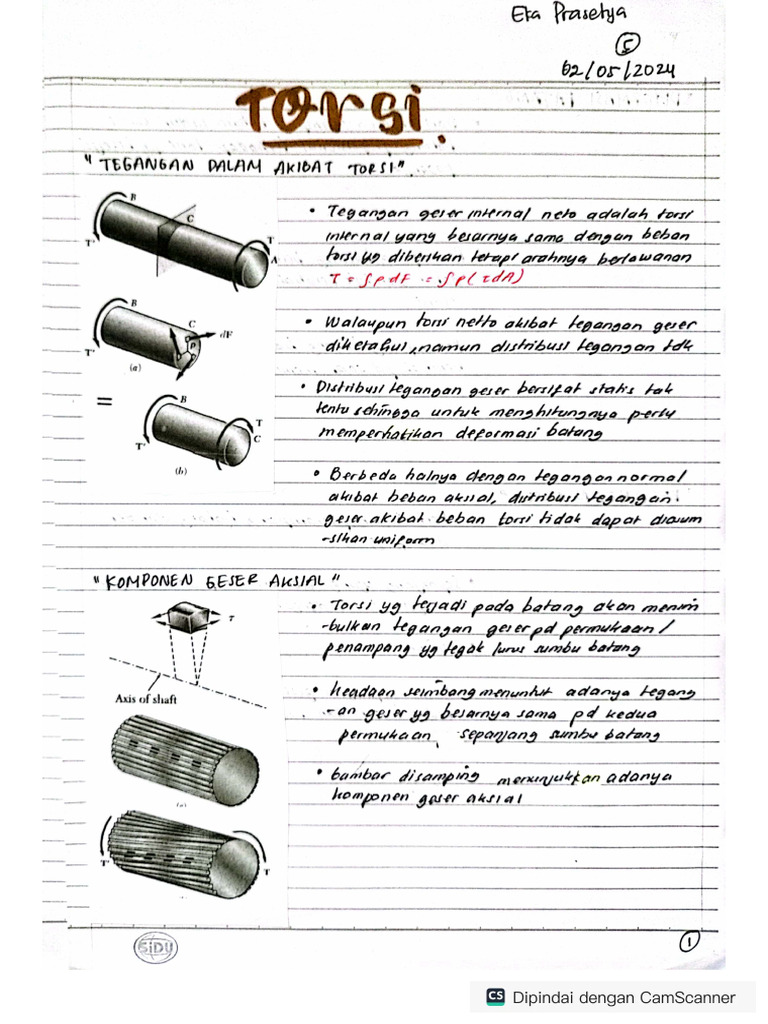 Eka Prasetya
5
02/05/2024
TORSI.
"TEGANGAN DALAM AKIBAT TORSI".
B
C
T
T'
A
• Tegangan geser internal neto adalah torsi
internal yang besarnya sama dengan beban
torsi yg diberikan tetapi arahnya berlawanan
T = ∫ρ dF = ∫ρ(τdA)
B
C
dF
ρ
T'
(a)
• Walaupun torsi netto akibat tegangan geser
diketahui, namun distribusi tegangan tdk
=
B
T
C
T'
(b)
• Distribusi tegangan geser bersifat statis tak
tentu sehingga untuk menghitungnya perlu
memperhatikan deformasi batang
• Berbeda halnya dengan tegangan normal
akibat beban aksial, distribusi tegangan
geser akibat beban torsi tidak dapat diasum
-sikan uniform
"KOMPONEN GESER AKSIAL".
τ
Axis of shaft
• Torsi yg terjadi pada batang akan menim
-bulkan tegangan geser pd permukaan /
penampang yg tegak lurus sumbu batang
• keadaan seimbang menuntut adanya tegang
-an geser yg besarnya sama pd kedua
permukaan, sepanjang sumbu batang
• Gambar disamping menunjukkan adanya
komponen geser aksial
(a)
T'
T
SiDU
1
CS Dipindai dengan CamScanner